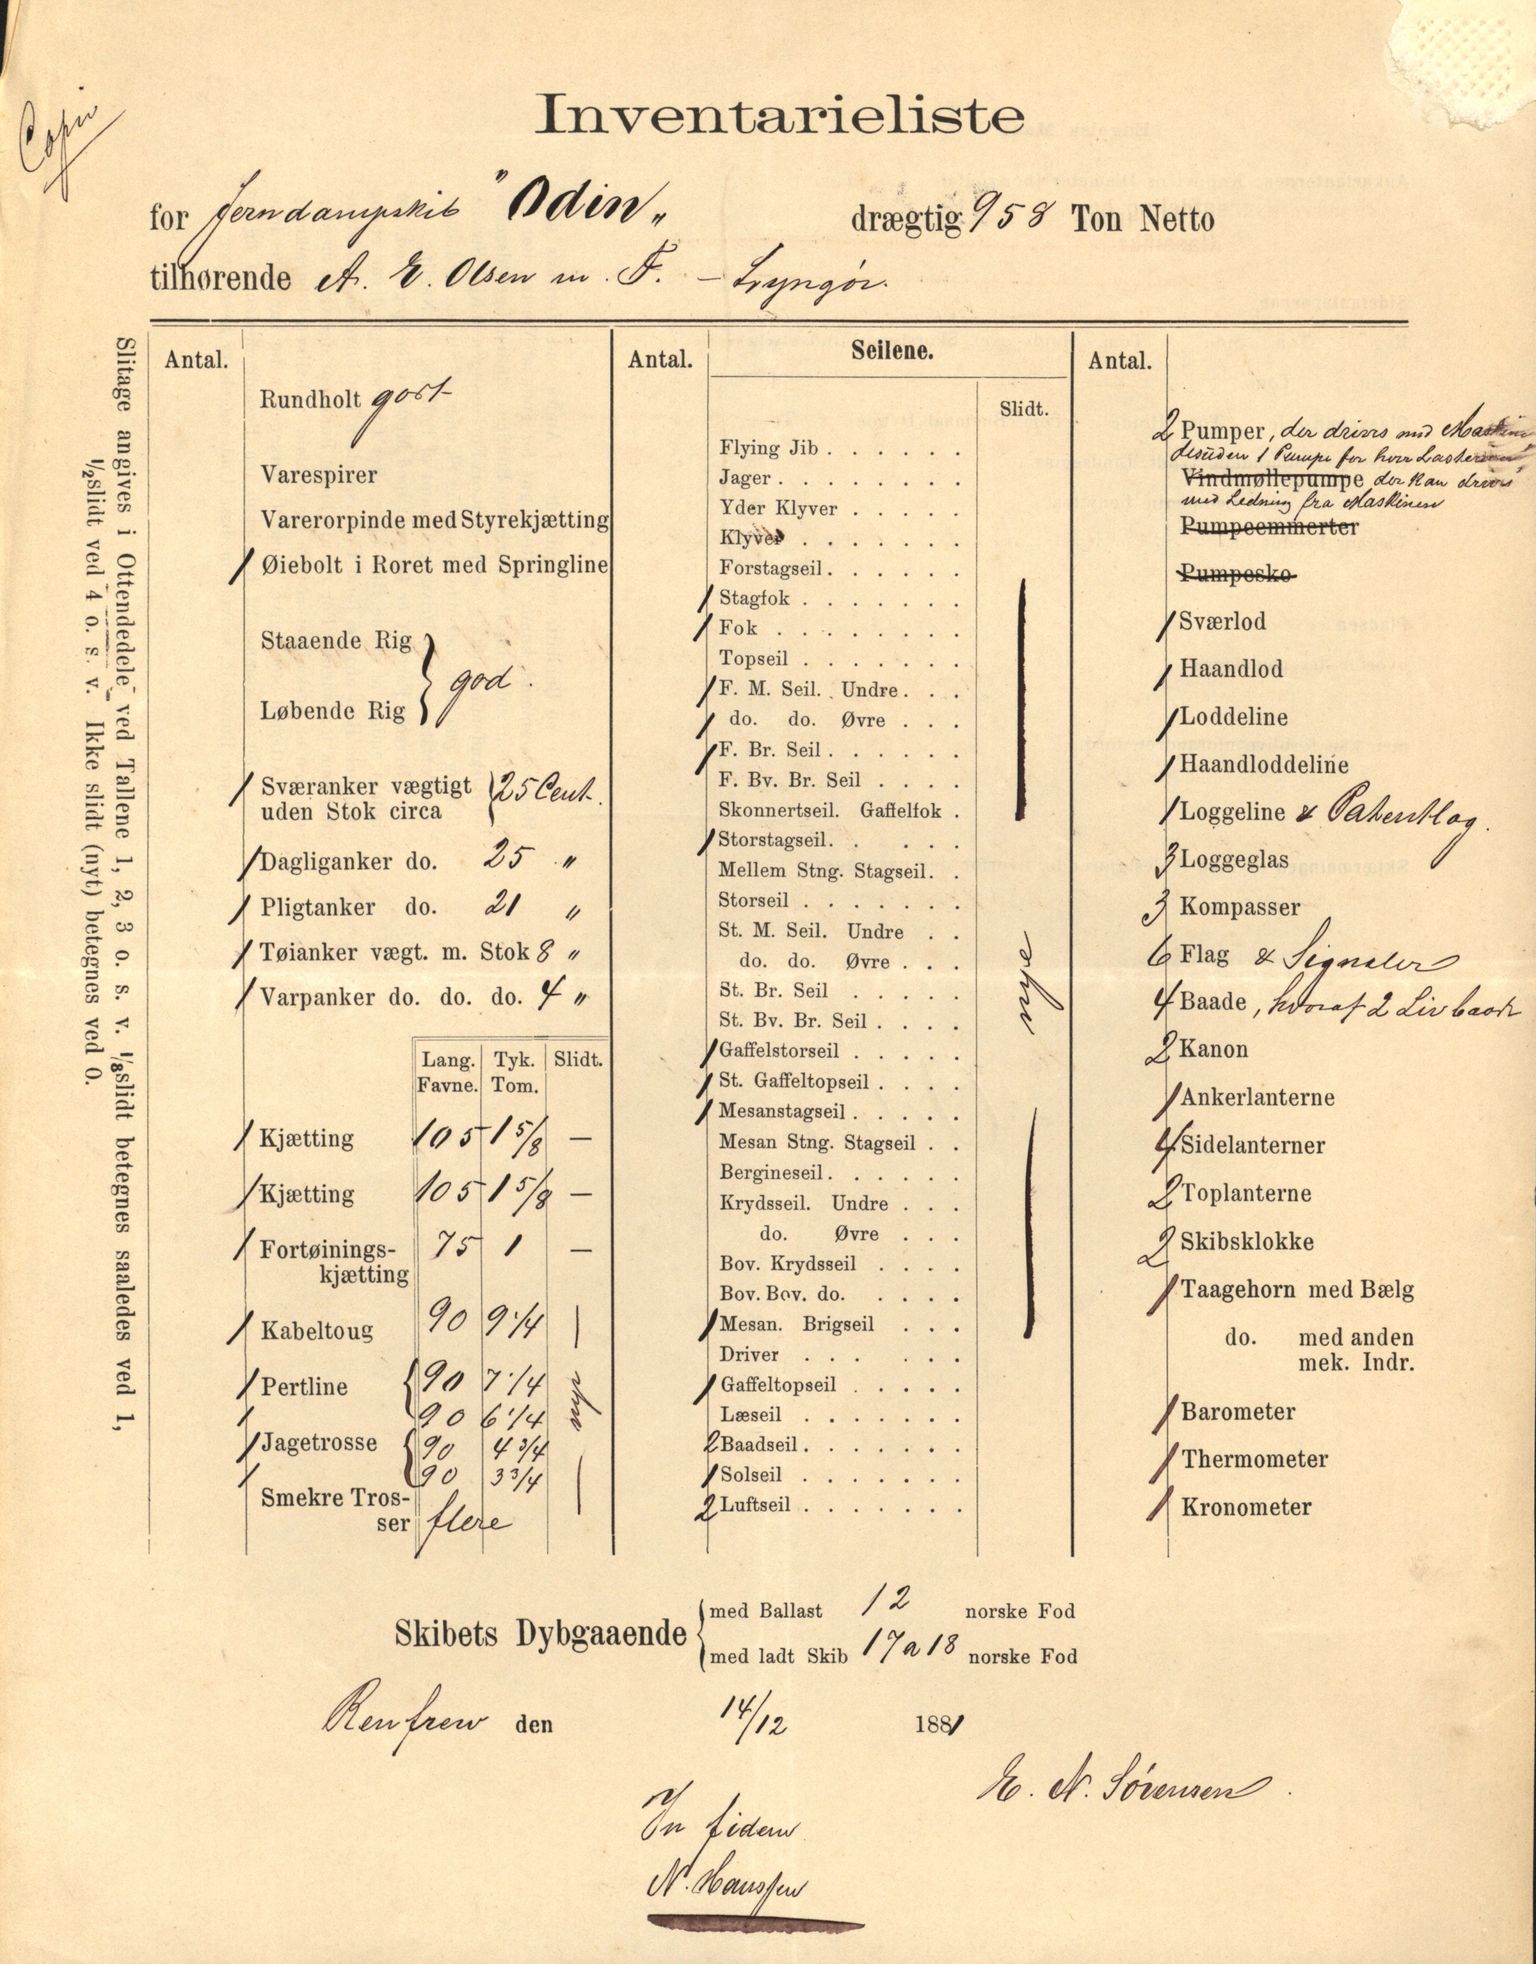 Copi
Inventarieliste
for Jerndampskib "Odin„ drægtig 958 Ton Netto
tilhørende A. E. Olsen m. F. – Lyngør.
Slitage angives i Ottendedele ved Tallene 1, 2, 3 o. s. v. 1/8slidt betegnes saaledes ved 1,
1/2slidt ved 4 o. s. v. Ikke slidt (nyt) betegnes ved 0.
Antal.
Rundholt godt
Varespirer
Varerorpinde med Styrekjætting
1 Øiebolt i Roret med Springline
Staaende Rig
god.
Løbende Rig
1 Sværanker vægtigt
uden Stok circa 25 Cent.
1 Dagliganker do. 25 „
1 Pligtanker do. 21 „
1 Tøianker vægt. m. Stok 8 „
1 Varpanker do. do. do. 4 „
Lang. Tyk. Slidt.
Favne. Tom.
1 Kjætting 105 1 5/8 —
1 Kjætting 105 1 5/8 —
1 Fortøinings- 75 1 —
kjætting
1 Kabeltoug 90 9 1/4
1 Pertline 90 7 1/4
1 90 6 1/4
1 Jagetrosse 90 4 3/4
1 90 3 3/4
Smekre Tros-
ser flere
nye
Antal. Seilene.
Slidt.
Flying Jib . . . . . .
Jager . . . . . . . .
Yder Klyver . . . . .
Klyver . . . . . . .
Forstagseil . . . . . .
1 Stagfok . . . . . . .
1 Fok . . . . . . . .
Topseil . . . . . . .
1 F. M. Seil. Undre . . .
1 do. do. Øvre . . .
1 F. Br. Seil . . . . . .
F. Bv. Br. Seil . . . .
Skonnertseil. Gaffelfok .
1 Storstagseil. . . . .
Mellem Stng. Stagseil. .
Storseil . . . . . . .
St. M. Seil. Undre . .
do. do. Øvre . . .
St. Br. Seil . . . . .
St. Bv. Br. Seil . . . .
1 Gaffelstorseil . . . . .
1 St. Gaffeltopseil . . . .
1 Mesanstagseil . . . . .
Mesan Stng. Stagseil . .
Bergineseil . . . . . .
Krydsseil. Undre . . .
do. Øvre . . .
Bov. Krydsseil . . . .
Bov. Bov. do. . . . .
1 Mesan. Brigseil . . .
Driver . . . . . .
1 Gaffeltopseil . . . . .
Læseil . . . . . . .
2 Baadseil . . . . . . .
1 Solseil . . . . . . .
2 Luftseil . . . . . . .
nye
Antal.
2 Pumper, der drives med Maskin
desuden 1 Pumpe for hver
Vindmøllepumpe der kan drives
med Ledning fra Maskinen
Pumpeemmerter
Pumpesko
1 Sværlod
1 Haandlod
1 Loddeline
1 Haandloddeline
1 Loggeline & Patentlog.
3 Loggeglas
3 Kompasser
6 Flag & Signaler
4 Baade, hvoraf 2 Livbaade
2 Kanon
1 Ankerlanterne
4 Sidelanterner
2 Toplanterne
2 Skibsklokke
1 Taagehorn med Bælg
do. med anden
mek. Indr.
1 Barometer
1 Thermometer
1 Kronometer
Skibets Dybgaaende
med Ballast 12 norske Fod
med ladt Skib 17 a 18 norske Fod
Renfrew den 14/12 1881
E. N. Sörensen.
In fidem
N. Hanssen